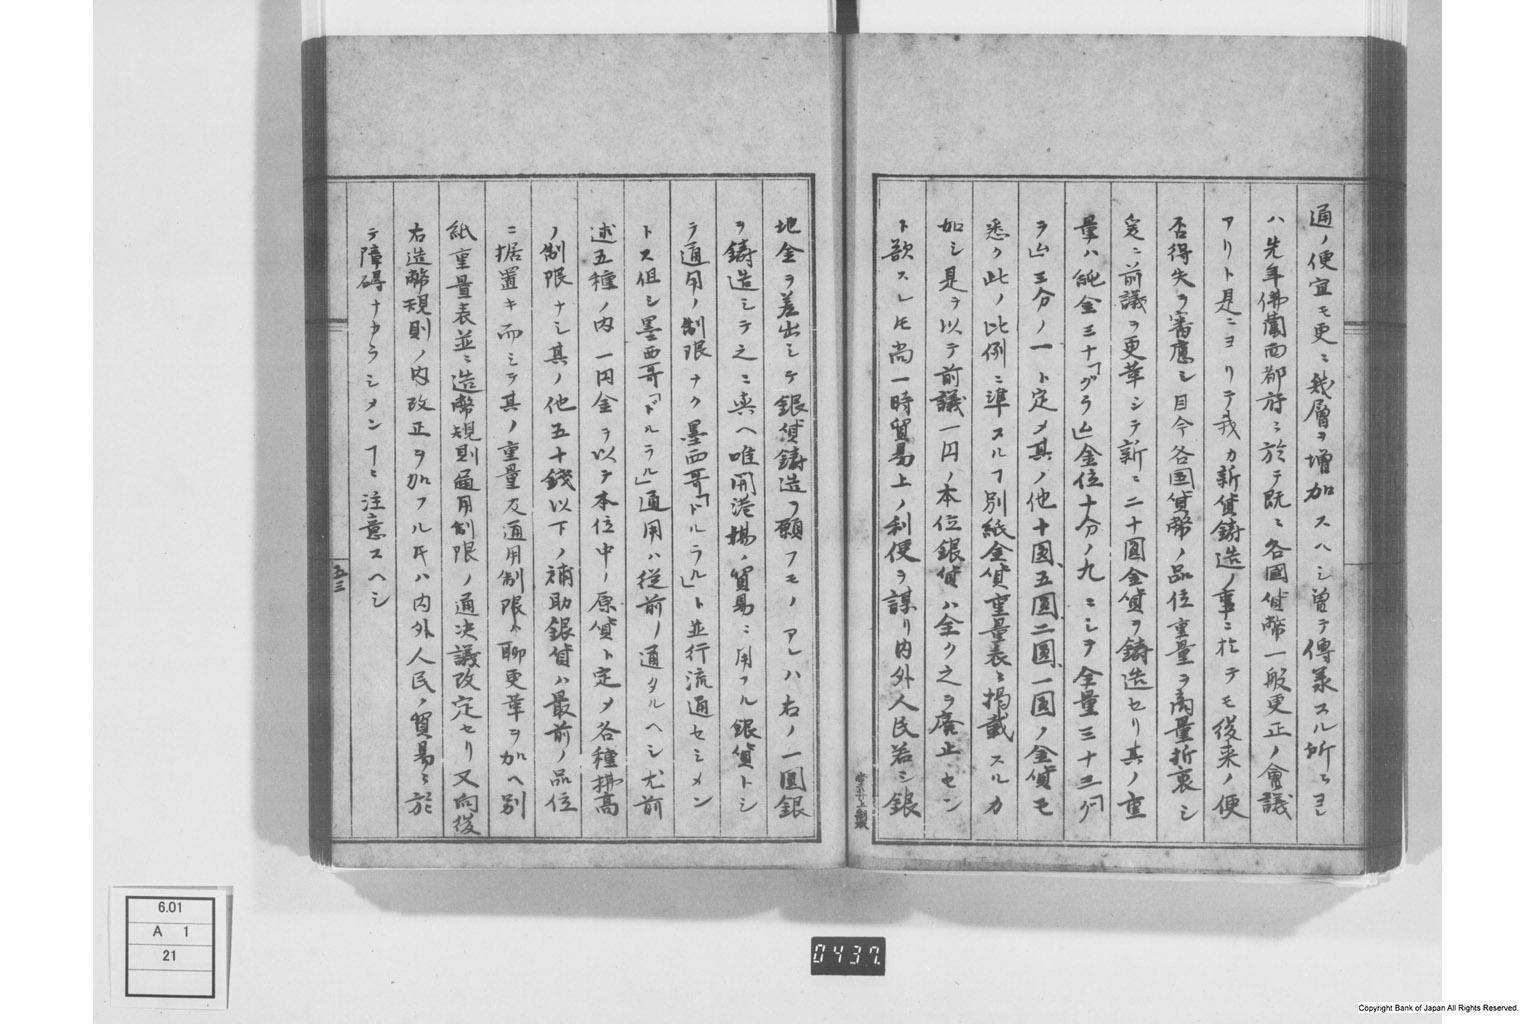 通ノ便宜モ更ニ幾層ヲ増加スヘシ曽テ傳承スル所ニヨレ
ハ先年佛蘭西都府ニ於テ既ニ各國貨幣一般更正ノ會議
アリト是ニヨリテ我カ新貨鋳造ノ事ニ於テモ後来ノ便
否得失ヲ審慮シ目今各国貨幣ノ品位重量ヲ商量折衷シ
更ニ前議ヲ更革シテ新ニ二十圓金貨ヲ鋳造セリ其ノ重
量ハ純金三十「グラム」金位十分ノ九ニシテ全量三十三「グ
ラム」三分ノ一ト定メ其ノ他十圓、五圓、二圓、一圓ノ金貨モ
悉ク此ノ比例ニ準スルヿ別紙金貨重量表ニ掲載スルカ
如シ是ヲ以テ前議一円ノ本位銀貨ハ全ク之ヲ廃止セン
ト欲スレ𪜈尚一時貿易上ノ利便ヲ謀リ内外人民若シ銀
地金ヲ差出シテ銀貨鋳造ヲ願フモノアレハ右ノ一圓銀
ヲ鋳造シテ之ニ與ヘ唯開港場ノ貿易ニ用フル銀貨トシ
テ通用ノ制限ナク墨西哥「ドルラル」ト並行流通セシメン
トス但シ墨西哥「ドルラル」通用ハ従前ノ通タルヘシ尤前
述五種ノ内一円金ヲ以テ本位中ノ原貨ト定メ各種拂高
ノ制限ナシ其ノ他五十錢以下ノ補助銀貨ハ最前ノ品位
ニ据置キ而シテ其ノ重量及通用制限ハ聊更革ヲ加ヘ別
紙重量表並ニ造幣規則通用制限ノ通決議改定セリ又向後
右造幣規則ノ内改正ヲ加フル𪜈ハ内外人民ノ貿易ニ於
テ障碍ナカラシメンヿニ注意スヘシ
五三
6.01
A 1
21
0437.
Copyright Bank of Japan All Rights Reserved.